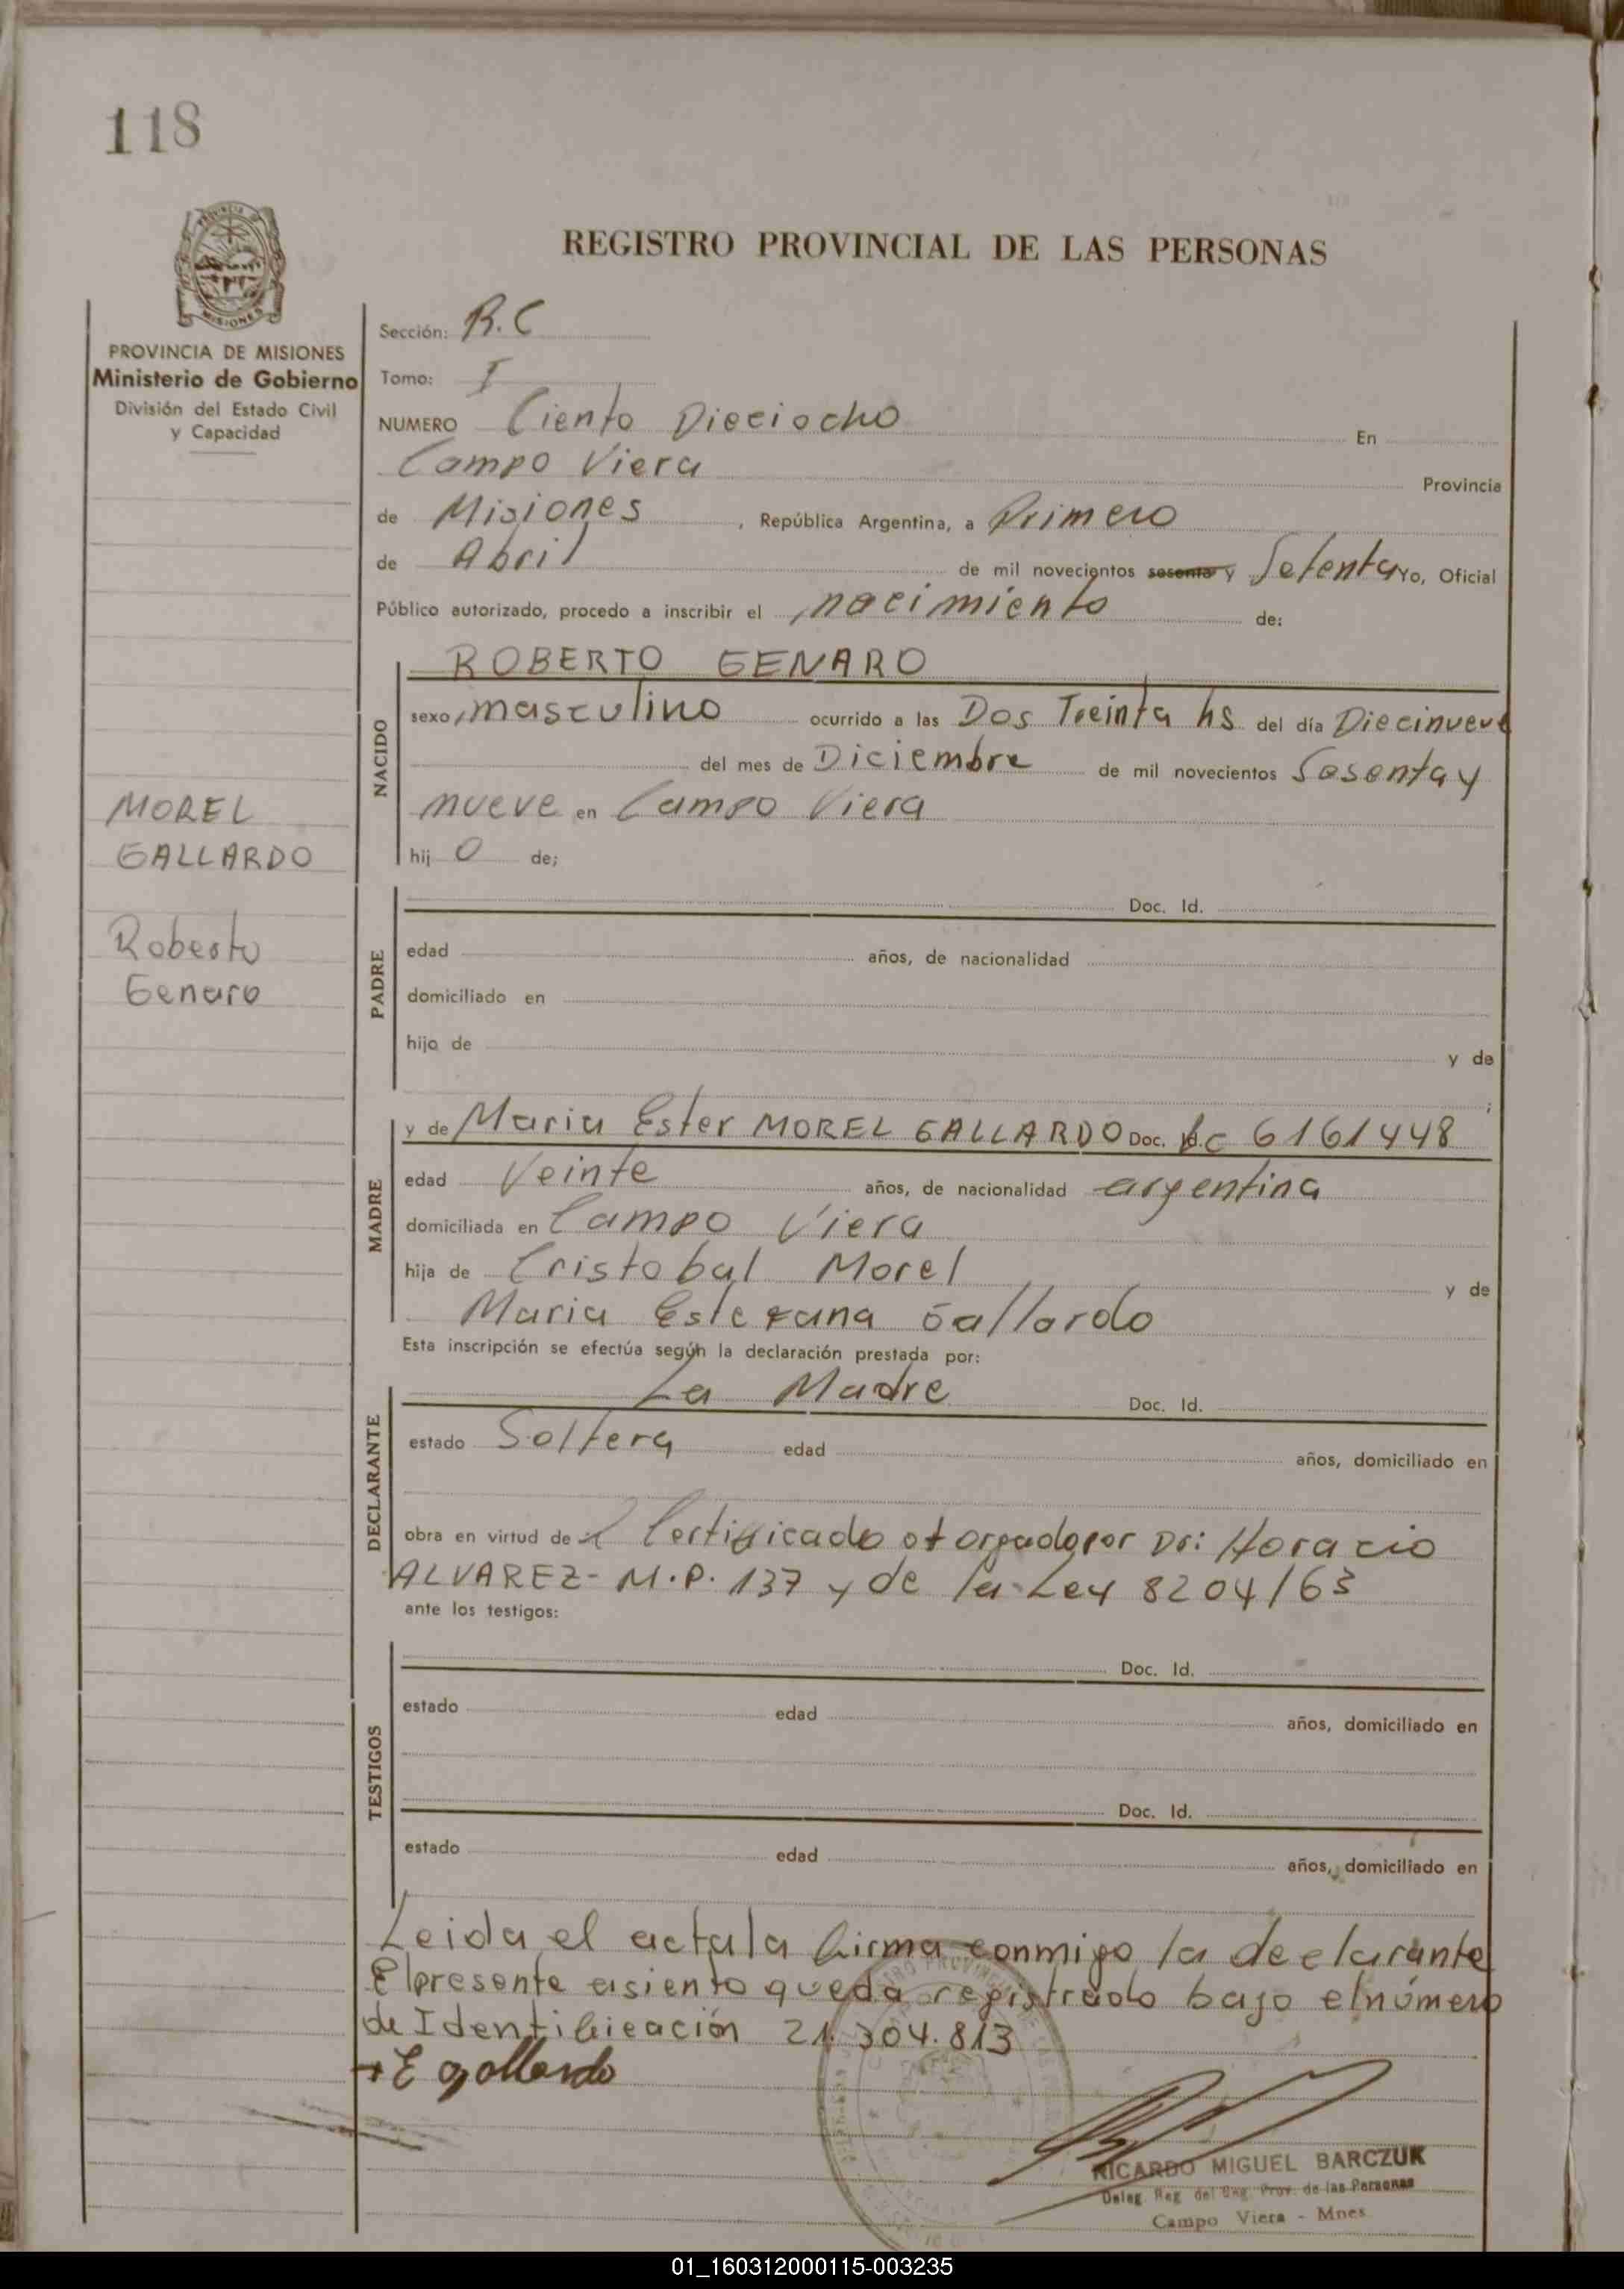 118
REGISTRO PROVINCIAL DE LAS PERSONAS
PROVINCIA DE MISIONES
Ministerio de Gobierno
División del Estado Civil
y Capacidad
MOREL
GALLARDO
Roberto
Genaro
Sección: R.C
Tomo: I
NUMERO Ciento Dieciocho En
Campo Viera Provincia
de Misiones, República Argentina, a Primero
de Abril de mil novecientos sesenta y Setenta Yo, Oficial
Público autorizado, procedo a inscribir el nacimiento de:
NACIDO
ROBERTO GENARO
sexo masculino ocurrido a las Dos Treinta hs del día Diecinueve
del mes de Diciembre de mil novecientos Sesenta y
nueve en Campo Viera
hij o de;
PADRE
Doc. Id.
edad años, de nacionalidad
domiciliado en
hijo de y de
;
MADRE
y de Maria Ester MOREL GALLARDO Doc. L.C 6161448
edad Veinte años, de nacionalidad argentina
domiciliada en Campo Viera
hija de Cristobal Morel y de
Maria Estefana Gallardo
Esta inscripción se efectúa según la declaración prestada por:
DECLARANTE
La Madre Doc. Id.
estado Soltera edad años, domiciliado en
obra en virtud de l Certificado otorgado por Dr: Horacio
ALVAREZ- M.P. 137 y de la Ley 8204/63
ante los testigos:
TESTIGOS
Doc. Id.
estado edad años, domiciliado en
Doc. Id.
estado edad años, domiciliado en
Leida el acta la firma conmigo la declarante
El presente asiento queda registrado bajo el número
de Identificación 21.304.813
E gallardo
RICARDO MIGUEL BARCZUK
Deleg. Reg. del Prov. de las Personas
Campo Viera - Mnes
01_160312000115-003235